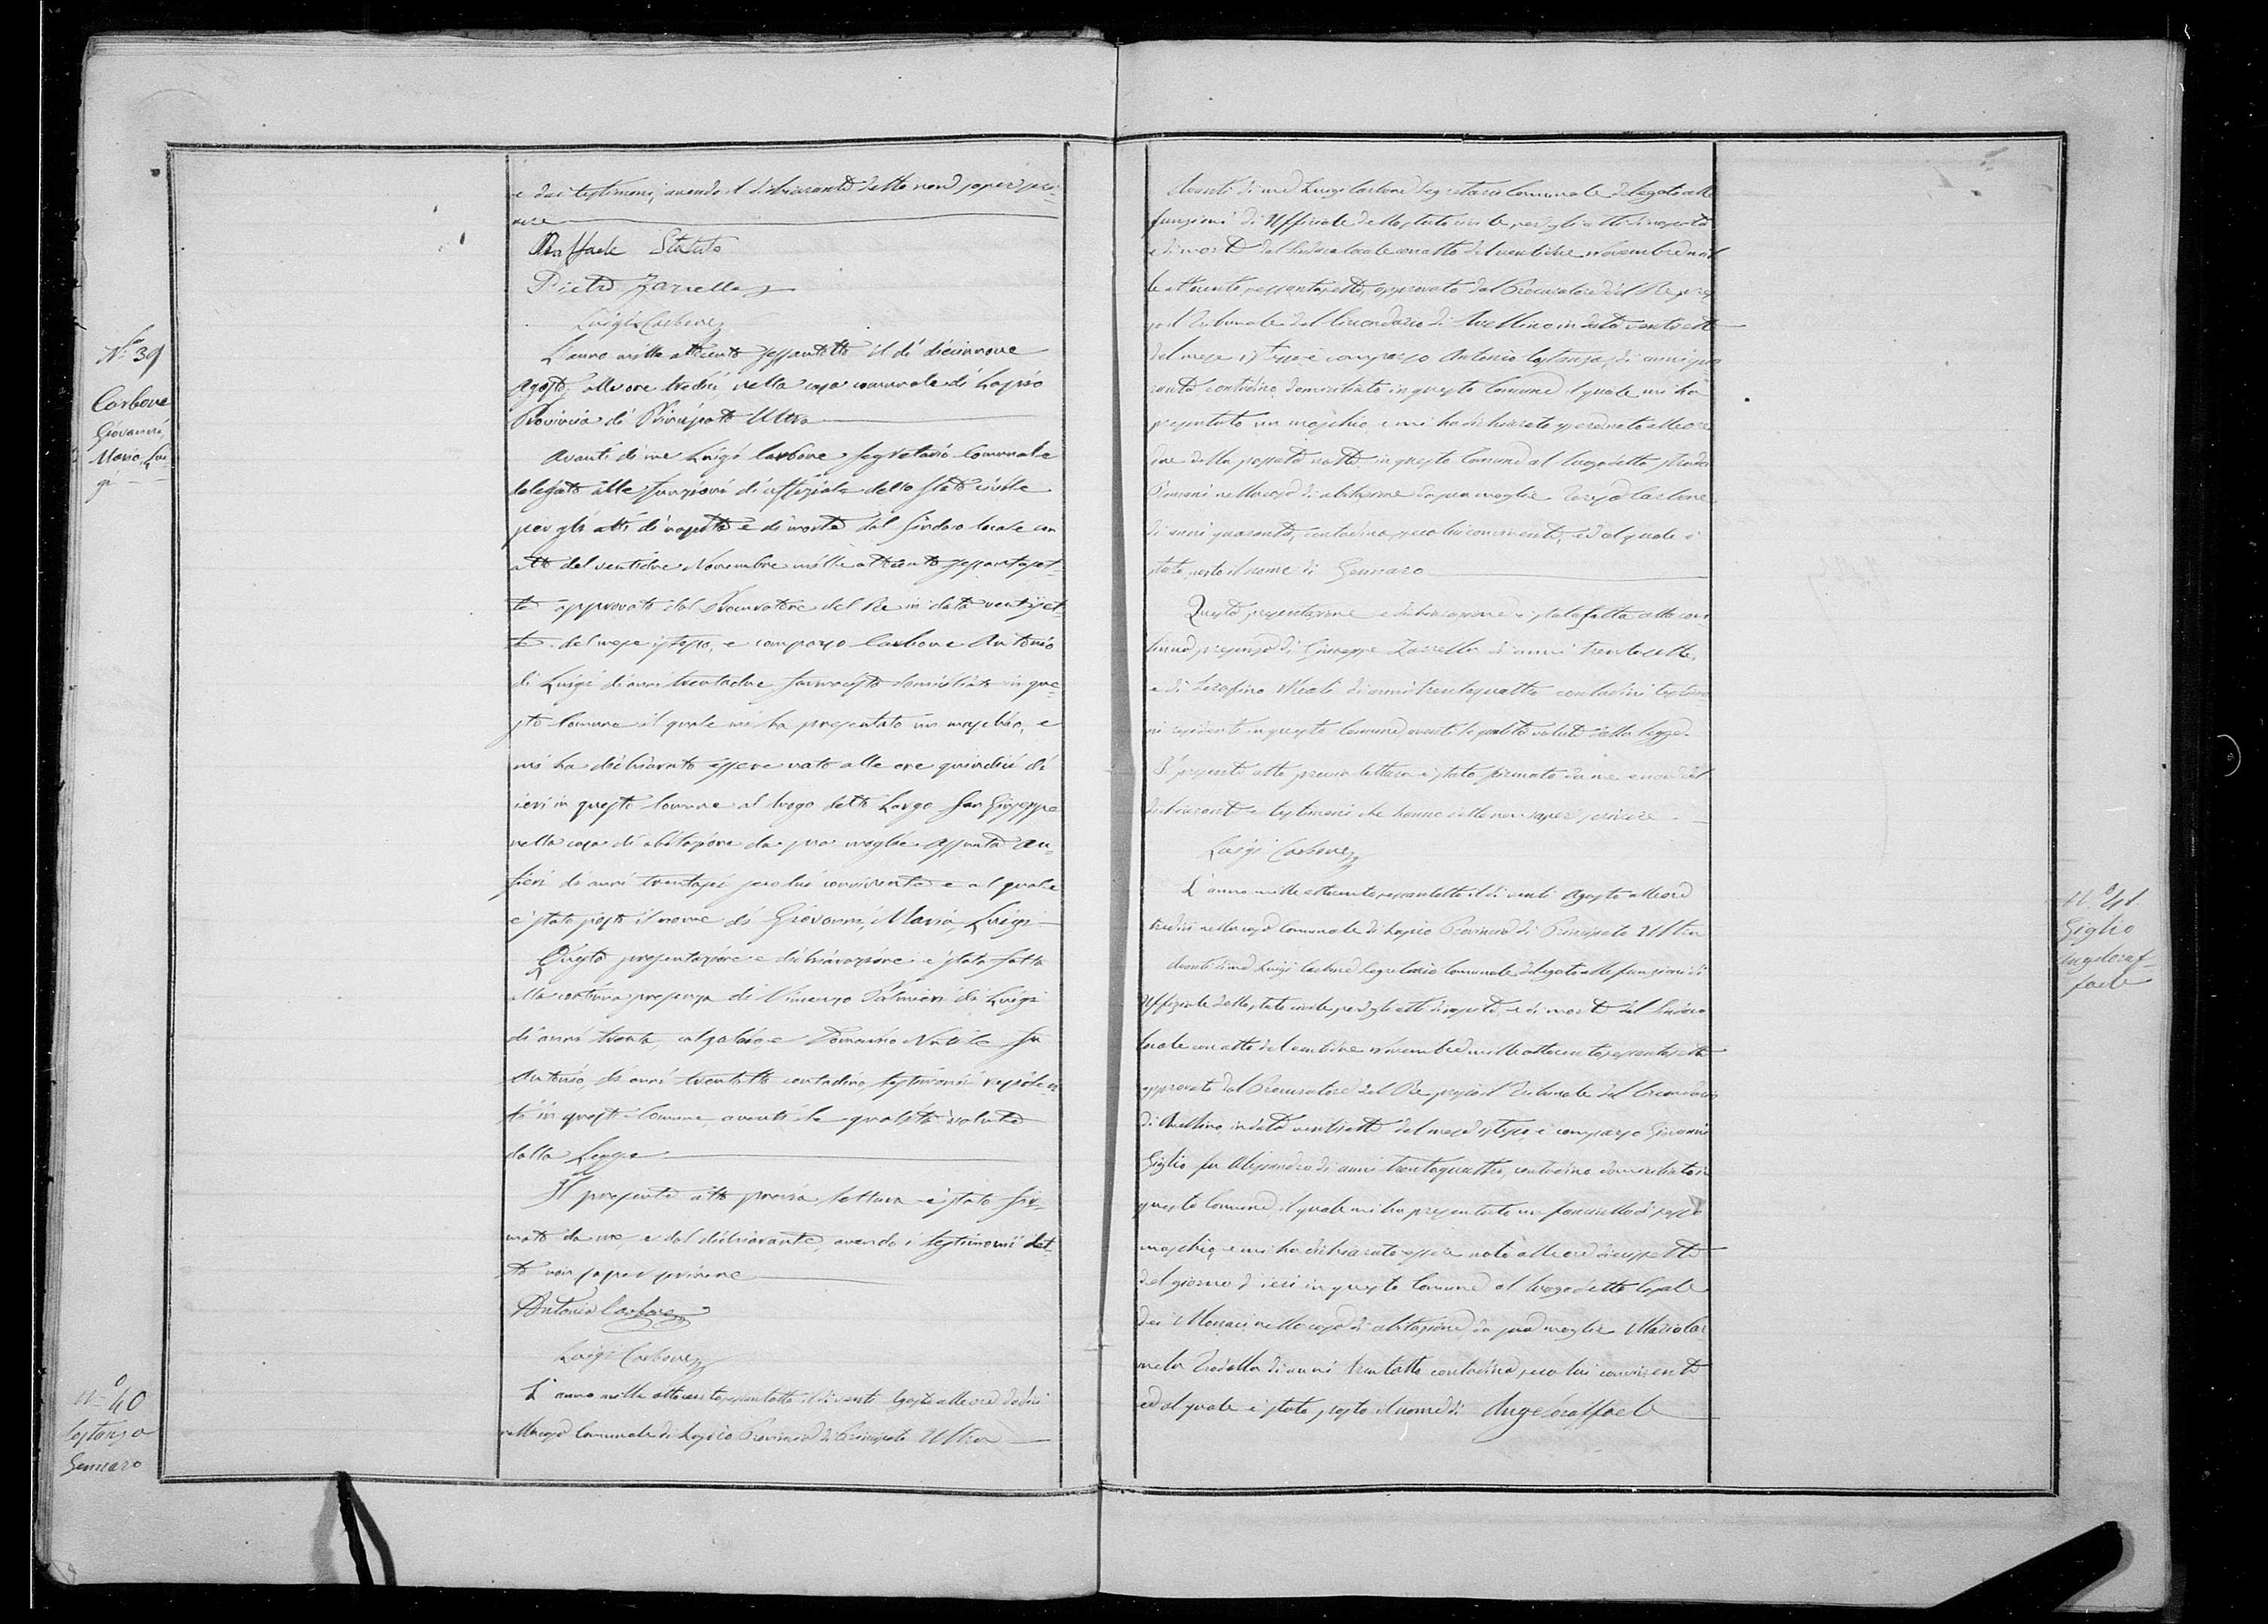 e dai testimoni, avendo il dichiarante detto non saper scri-
vere
Raffaele Statuto
Pietro Zarrella
Luigi Carbone
No 39
Carbone
Giovanni,
Maria, Lui-
gi
L'anno mille ottocento sessantotto il dì diciannove
Agosto alle ore tredici nella casa comunale di Lapio
Provincia di Principato Ultra
Avanti di me Luigi Carbone Segretario Comunale
delegato alle funzioni di uffiziale dello Stato civile
per gli atti di nascita e di morte dal Sindaco locale con
atto del ventidue Novembre mille ottocento sessantaset-
te approvato dal Procuratore del Re in data ventiset-
te del mese istesso, è comparso Carbone Antonio
di Luigi di anni trentadue farmacista domiciliato in que-
sto Comune il quale mi ha presentato un maschio, e
mi ha dichiarato essere nato alle ore quindici di
ieri in questo Comune al luogo detto Largo San Giuseppe
nella casa di abitazione da sua moglie Assunta An-
fieri di anni trentasei seco lui convivente e al quale
è stato posto il nome di Giovanni, Maria, Luigi
Questa presentazione e dichiarazione è stata fatta
alla continua presenza di Vincenzo Palmieri di Luigi
di anni trenta, calzolaio, e Domenico Natale fu
Antonio, di anni trentotto contadino, testimonii residen-
ti in questo Comune, aventi le qualità volute
dalla Legge
Il presente atto previa lettura è stato fir-
mato da me, e dal dichiarante, avendo i testimonii det-
to non saper scrivere
Antonio Carbone
Luigi Carbone
No 40
Costanza
Gennaro
L'anno mille ottocentosessantotto il dì venti Agosto alle ore dodici
nella casa Comunale di Lapio Provincia di Principato Ultra
Avanti di me Luigi Carbone Segretario Comunale delegato alle
funzioni di Uffiziale dello stato civile per gli atti di nascita
e di morte dal Sindaco locale con atto del ventidue Novembre mil
le ottocento sessantasette, approvato dal Procuratore del Re pres
so il Tribunale del Circondario di Avellino in data ventisette
del mese istesso è comparso Antonio Costanza, di anni qua
ranta contadino domiciliato in questo Comune il quale mi ha
presentato un maschio, e mi ha dichiarato essere nato alle ore
due della passata notte in questo Comune al luogo detto strada
nella casa di abitazione da sua moglie Carbone
di anni quaranta, contadina, seco lui convivente, ed al quale è
stato posto il nome di Gennaro
Questa presentazione e dichiarazione è stata fatta alla con
tinua presenza di Giuseppe Zarrella di anni trentasette,
e di Serafino di anni trentaquattro contadini testimo
ni residenti in questo Comune aventi le qualità volute dalla legge.
Il presente atto previa lettura è stato firmato da me e non dal
dichiarante e testimoni che hanno detto non sapere scrivere
Luigi Carbone
No 41
Giglio
Angeloraf-
faele
L'anno mille ottocento sessantotto il dì venti Agosto alle ore
tredici nella casa Comunale di Lapio Provincia di Principato Ultra
Avanti di me Luigi Carbone Segretario Comunale delegato alle funzioni di
Uffiziale dello stato civile per gli atti di nascita, e di morte dal Sindaco
locale con atto del ventidue Novembre mille ottocento sessantasette
approvato dal Procuratore del Re presso il Tribunale del Circondario
di Avellino in data ventisette del mese istesso, è comparso Giovanni
Giglio fu Alessandro di anni trentaquattro, contadino domiciliato in
questo Comune il quale mi ha presentato un fanciullo di sesso
maschio, e mi ha dichiarato essere nato alle ore diciassette
del giorno di ieri in questo Comune al luogo detto Casale
dei Monaci nella casa di abitazione da sua moglie Maria Car
mela di anni trentotto contadina, seco lui convivente
ed al quale è stato posto il nome di Angeloraffaele